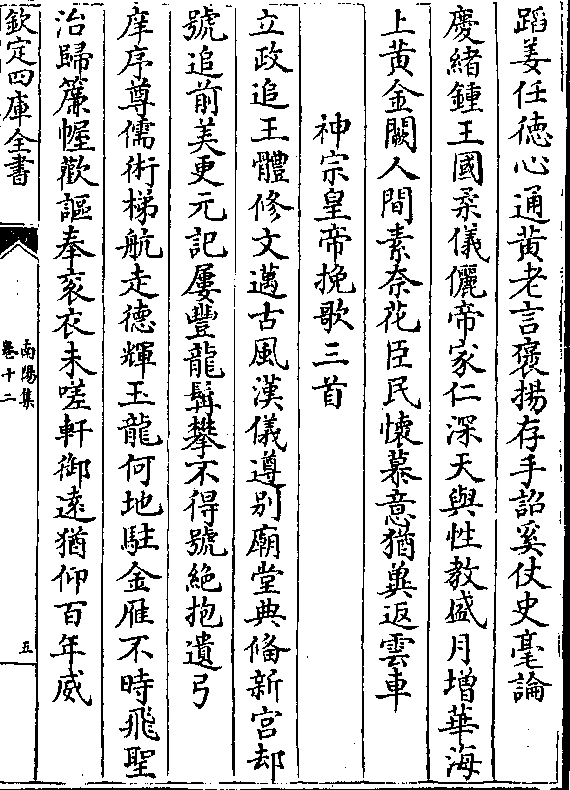 蹈姜任徳心通黄老言褒揚存手詔奚仗史毫論
慶緒鍾王國柔儀儷帝家仁深天與性教盛月增華海
上黄金闕人間素奈花臣民懐慕意猶兾返雲車
神宗皇帝挽歌三首
立政追王體修文邁古風漢儀遵别廟堂典俻新宫却
號追前美更元記屢豐龍髯攀不得號絶抱遺弓
庠序尊儒術梯航走德輝玉龍何地駐金雁不時飛聖
治歸簾幄歡謳奉衮衣未嗟軒御逺猶仰百年威
欽定四庫全書
南陽集
卷十二
五